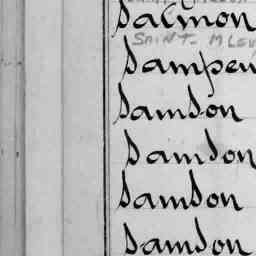 Salmon
SAINT-MLEU
Sampeu
Samson
Samson
Samson
Samson